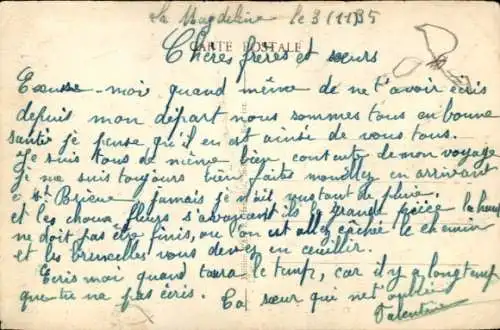 La Magdeleine le 3/11/35
CARTE POSTALE
Chères frères et sœurs
Excuse-moi quand même de ne t'avoir écris
depuis mon départ nous sommes tous en bonne
santé je pense qu'il en est ainsie de vous tous.
Je suis tous de même bien contente de mon voyage
je me suis toujours bien faite mouillez en arrivent
a St Brieuc jamais je n'ait autant de pluie.
et les choux fleurs la haut
ne doit pas être finis, ou l'on est allez le chemin
et les brunoelles vous devez en ceuillir.
Ecris moi quand taura le temp, car il y a longtemp
que tu ne pas écris. Ta sœur qui ne t'oublie
Valentine